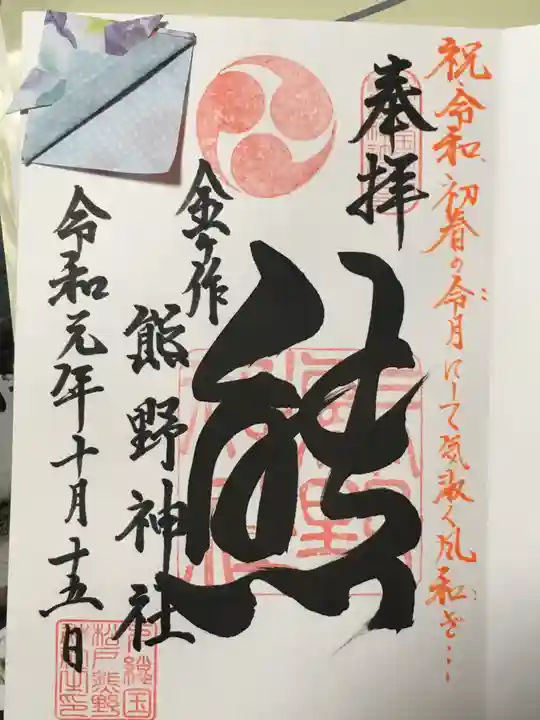 祝・令和 初春の令月にして気淑く風和ぎ…
奉拝
熊
金ケ作
熊野神社
令和元年十月十五日
下総国
松戸熊野